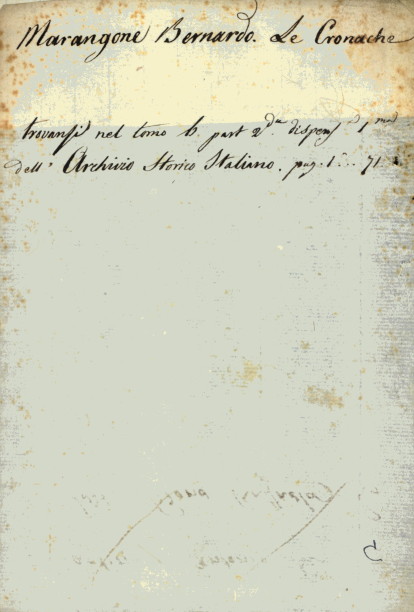 Marangone Bernardo. Le Cronache
trovansi nel tomo 6. part 2.da dispens.a 1.ma
dell' Archivio Storico Italiano. pag. 1... 71.